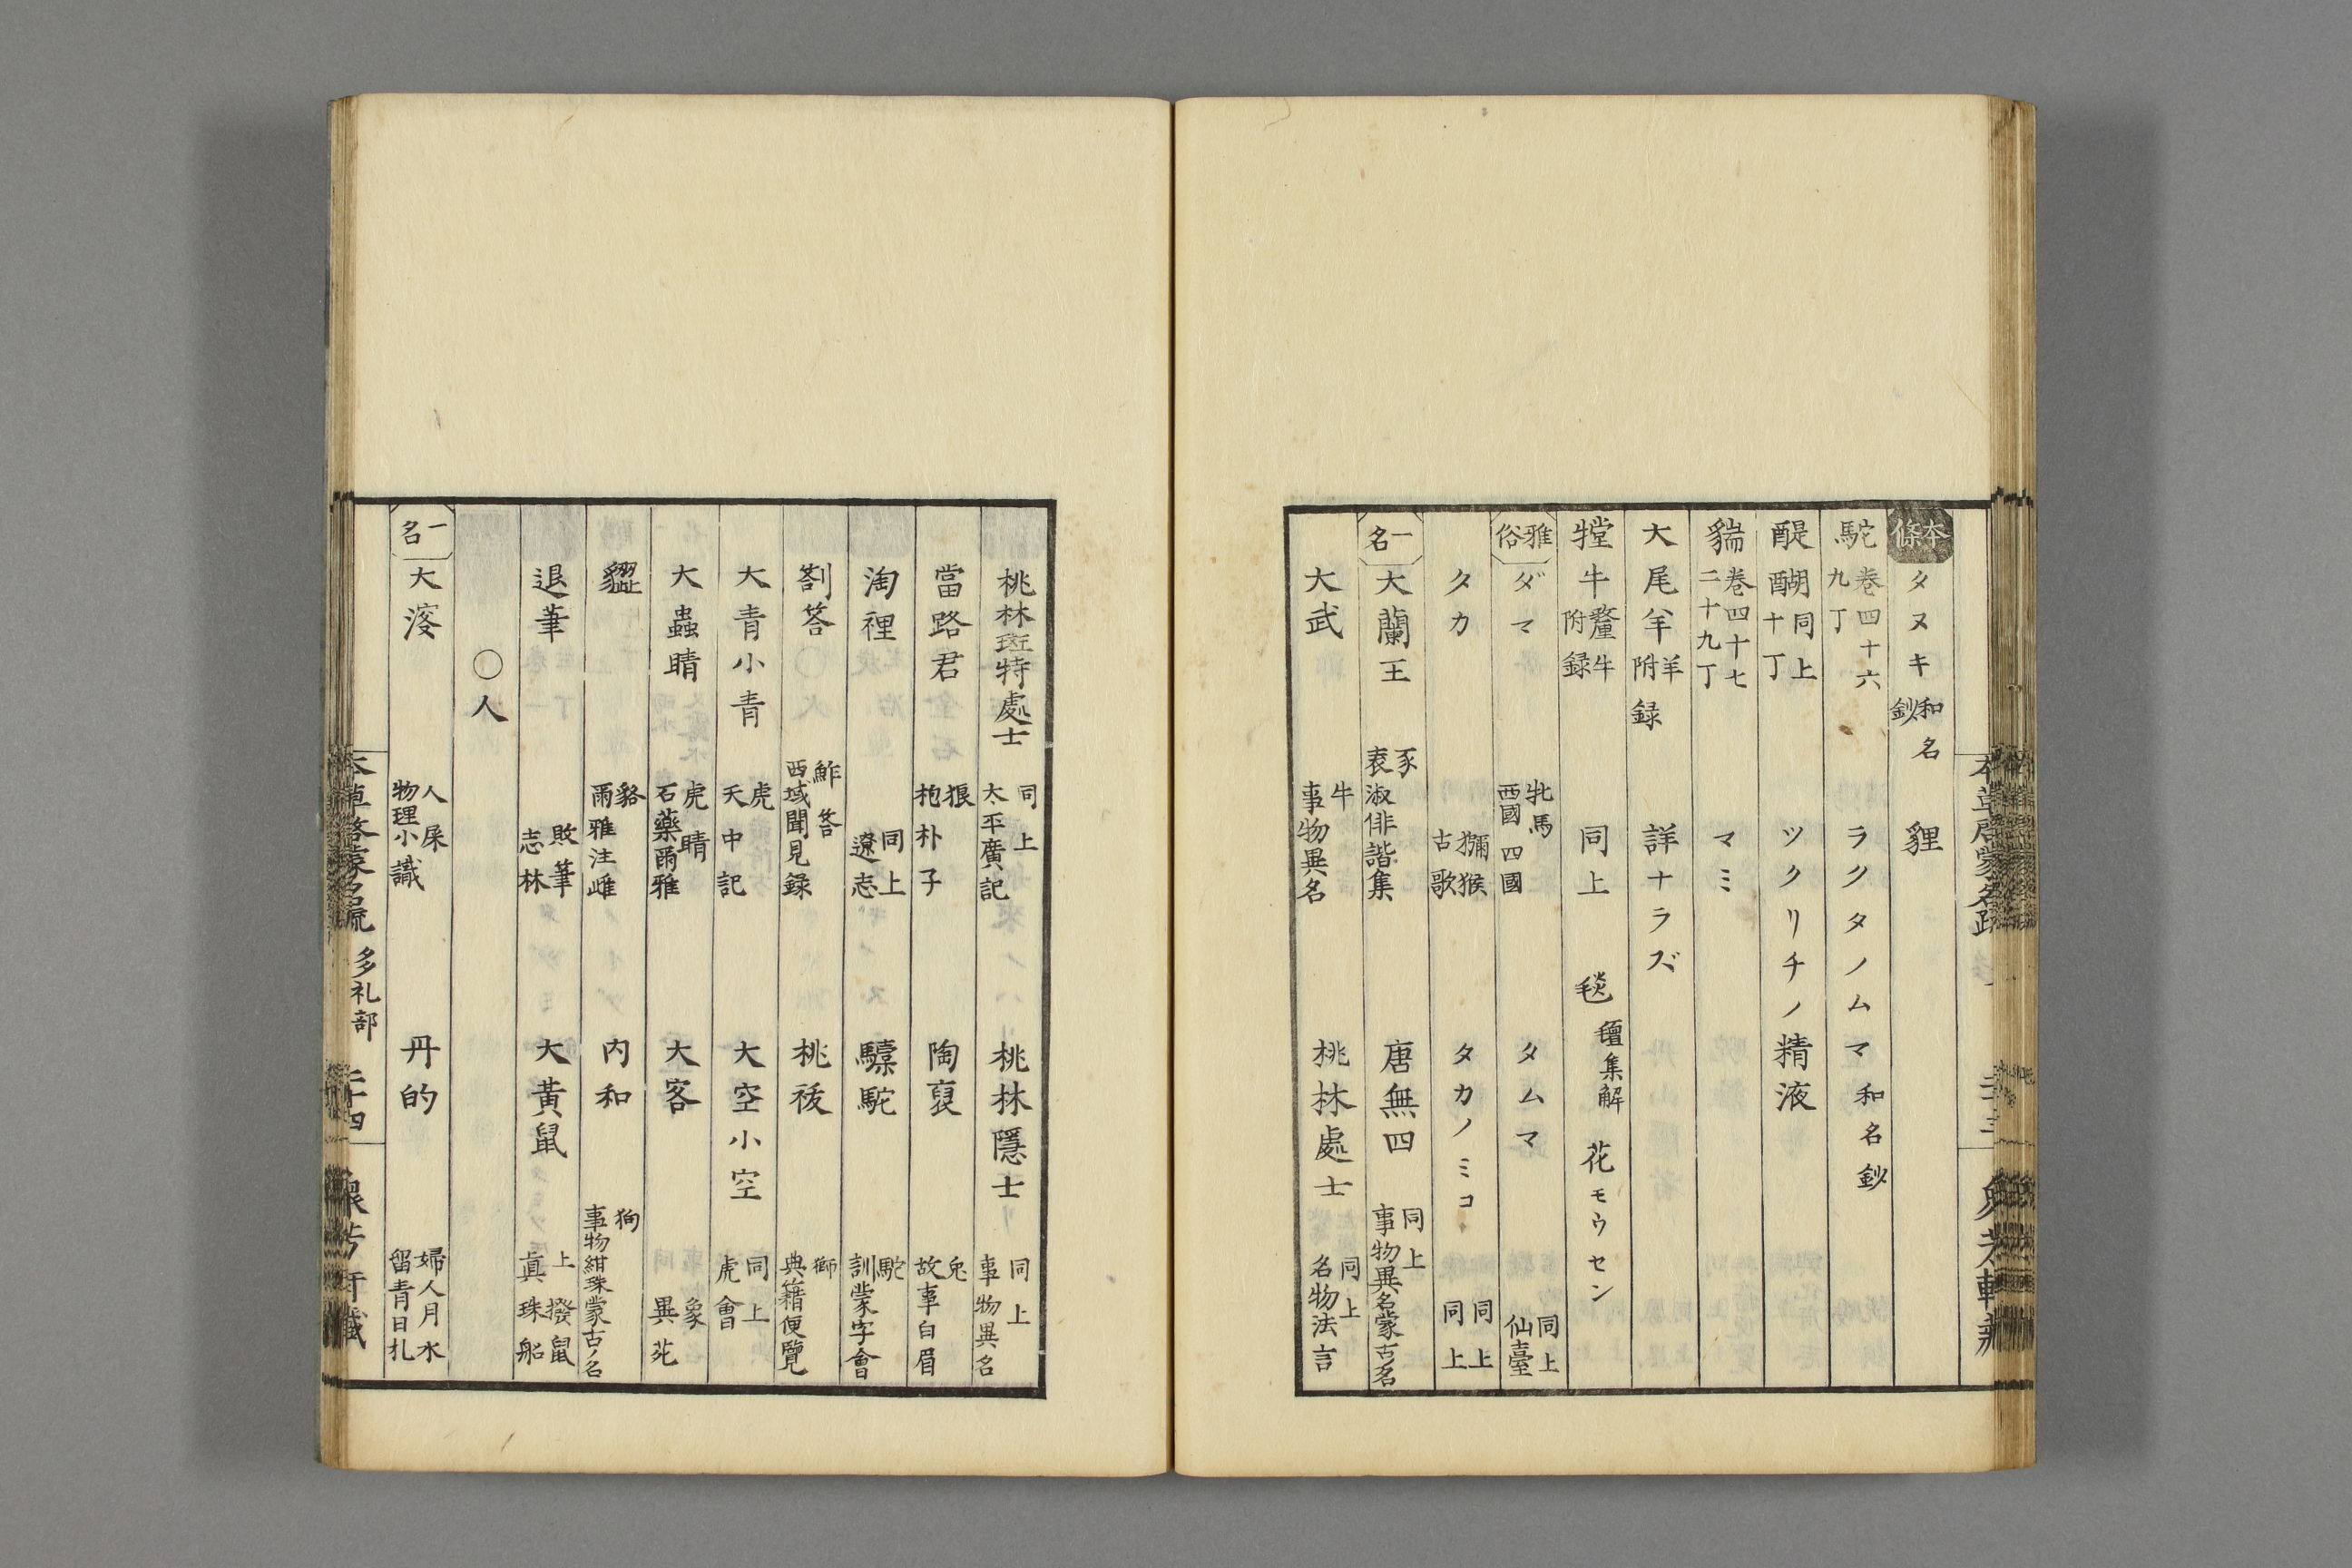 本條 タヌキ 和名鈔 貍
駝 巻四十六 九丁 ラクタノムマ 和名鈔
醍醐 同上 十丁 ツクリチノ精液
貒 巻四十七 二十九丁 マミ
大尾羊 羊附録 詳ナラズ
牛 犛牛附録 同上 毯 氊集解 花モウセン
雅俗 ダマ 牝馬 西國 四國 タムマ 同上 仙臺
タカ 獼猴 古歌 タカノミコ 同上 同上
一名 大蘭王 豕 袁淑俳諧集 唐無四 同上 事物異名蒙古名
大武 牛 事物異名 桃林處士 同上 名物法言
桃林斑特處士 同上 太平廣記 桃林隱士 同上 事物異名
當路君 狼 抱朴子 陶裒 兔 故事白眉
淘裡 同上 遼志 驝駝 駝 訓蒙字會
劄荅 鮓荅 西域聞見録 桃拔 獅 典籍便覽
大青小青 虎 天中記 大空小空 同上 虎會
大蟲睛 虎睛 石藥爾雅 大客 象 異苑
貑 貉 爾雅注雌 内和 狗 事物紺珠蒙古ノ名
退筆 敗筆 志林 大黃鼠 上撥鼠 眞珠船
○人
一名 大溲 人屎 物理小識 丹的 婦人月水 留青日札
本草啓蒙名疏 多礼部 二十四